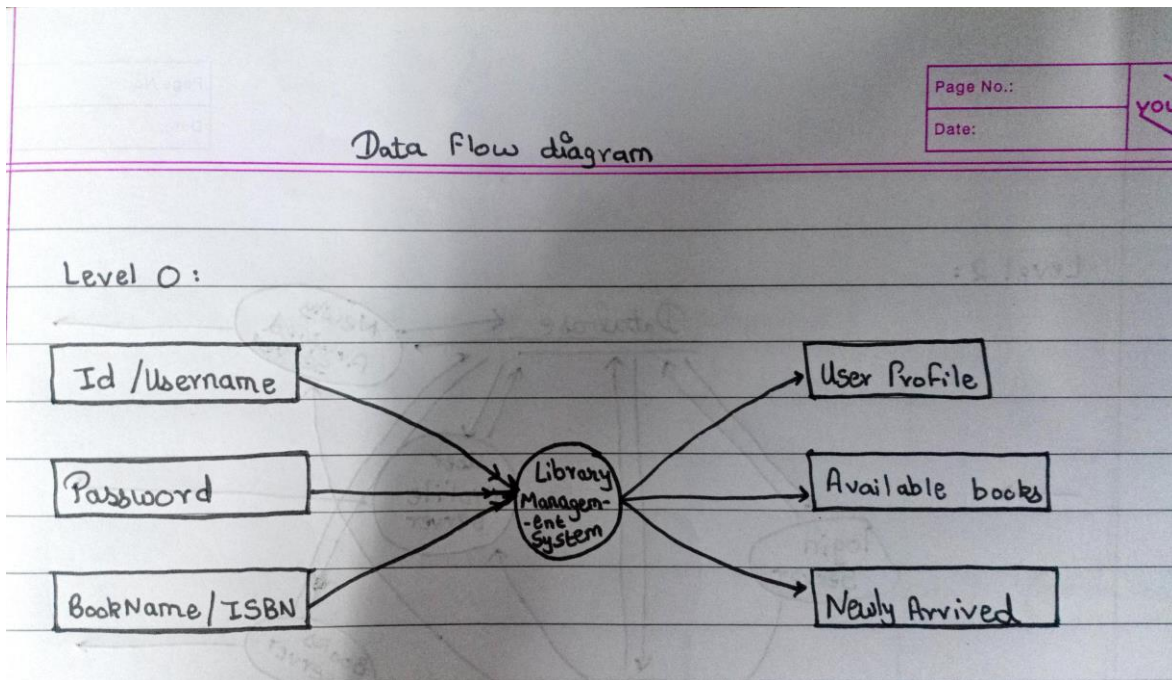 Page No.:
Date:
YOU
Data Flow diagram
Level 0:
Id /Username
Password
BookName/ISBN
Library
Managem-
-ent
System
User Profile
Available books
Newly Arrived